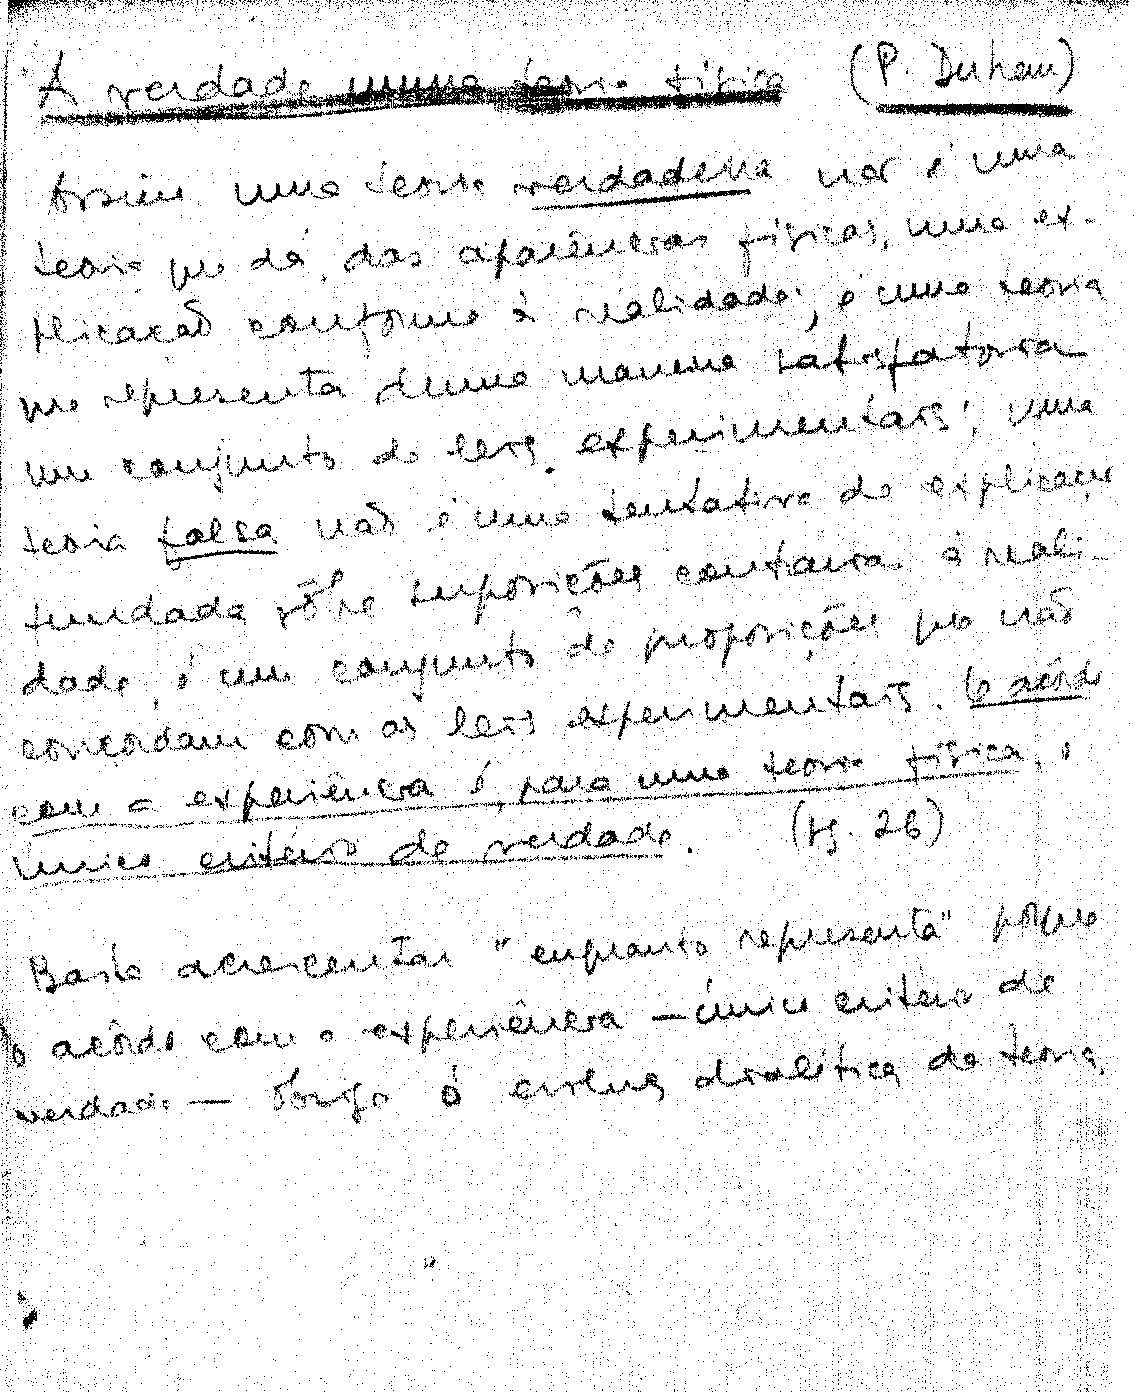 A verdade numa teoria física (P. Duhem)
Assim uma teoria verdadeira não é uma
teoria que dá, das aparências físicas, uma ex-
plicação conforme à realidade; é uma teoria
que representa duma maneira satisfatoria
um conjunto de leis experimentais; uma
teoria falsa não é uma tentativa de explicação
fundada sôbre suposições contrarias à reali-
dade, é um conjunto de proposições que não
concordam com as leis experimentais. O acôrdo
com a experiência é, para uma teoria física, o
único critério de verdade. (pg. 26)
Basta acrescentar "enquanto representa" porque
o acôrdo com a experiência — único critério de
verdade — à evolução dialética da teoria